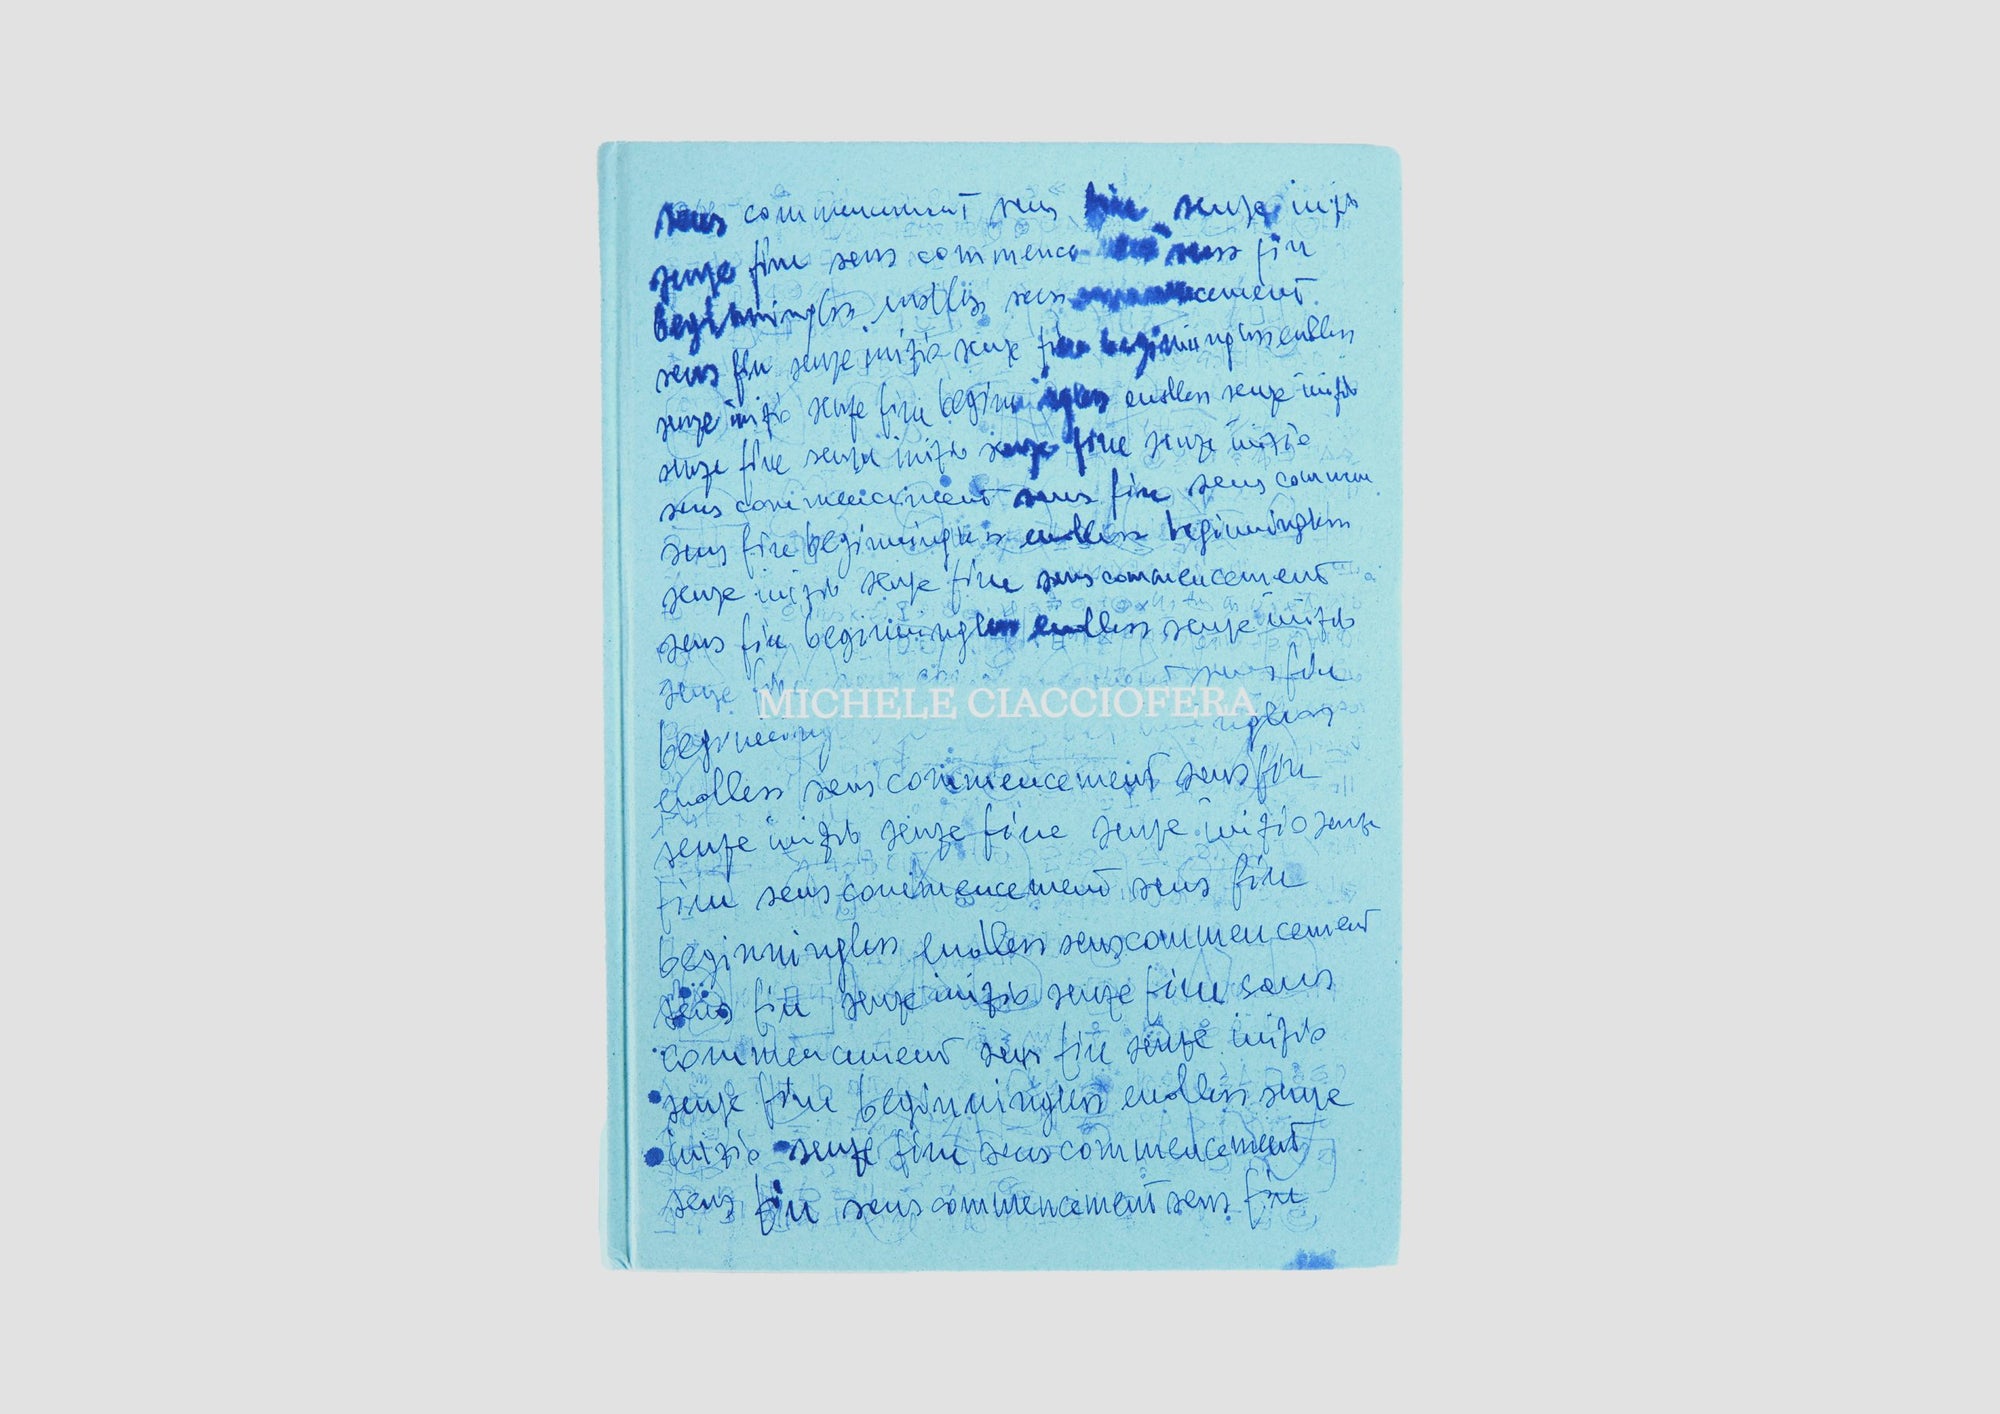 sans commencement sans fin senza inizio
senza fine sans commence sans fin
beginningless endless sans commencement
sans fin senza inizio senza fine beginningless endless
senza inizio senza fine beginningless endless senza inizio
senza fine senza inizio senza fine senza inizio
sans commencement sans fin sans commen
sans fin beginningless endless beginningless
senza inizio senza fine sans commencement
sans fin beginningless endless senza inizio
senza sans fin
MICHELE CIACCIOFERA
beginning ingless
endless sans commencement sans fin
senza inizio senza fine senza inizio senza
fine sans commencement sans fin
beginningless endless sans commencement
sans fin senza inizio senza fine sans
commencement sans fin senza inizio
senza fine beginningless endless senza
inizio senza fine sans commencement
sans fin sans commencement sans fin